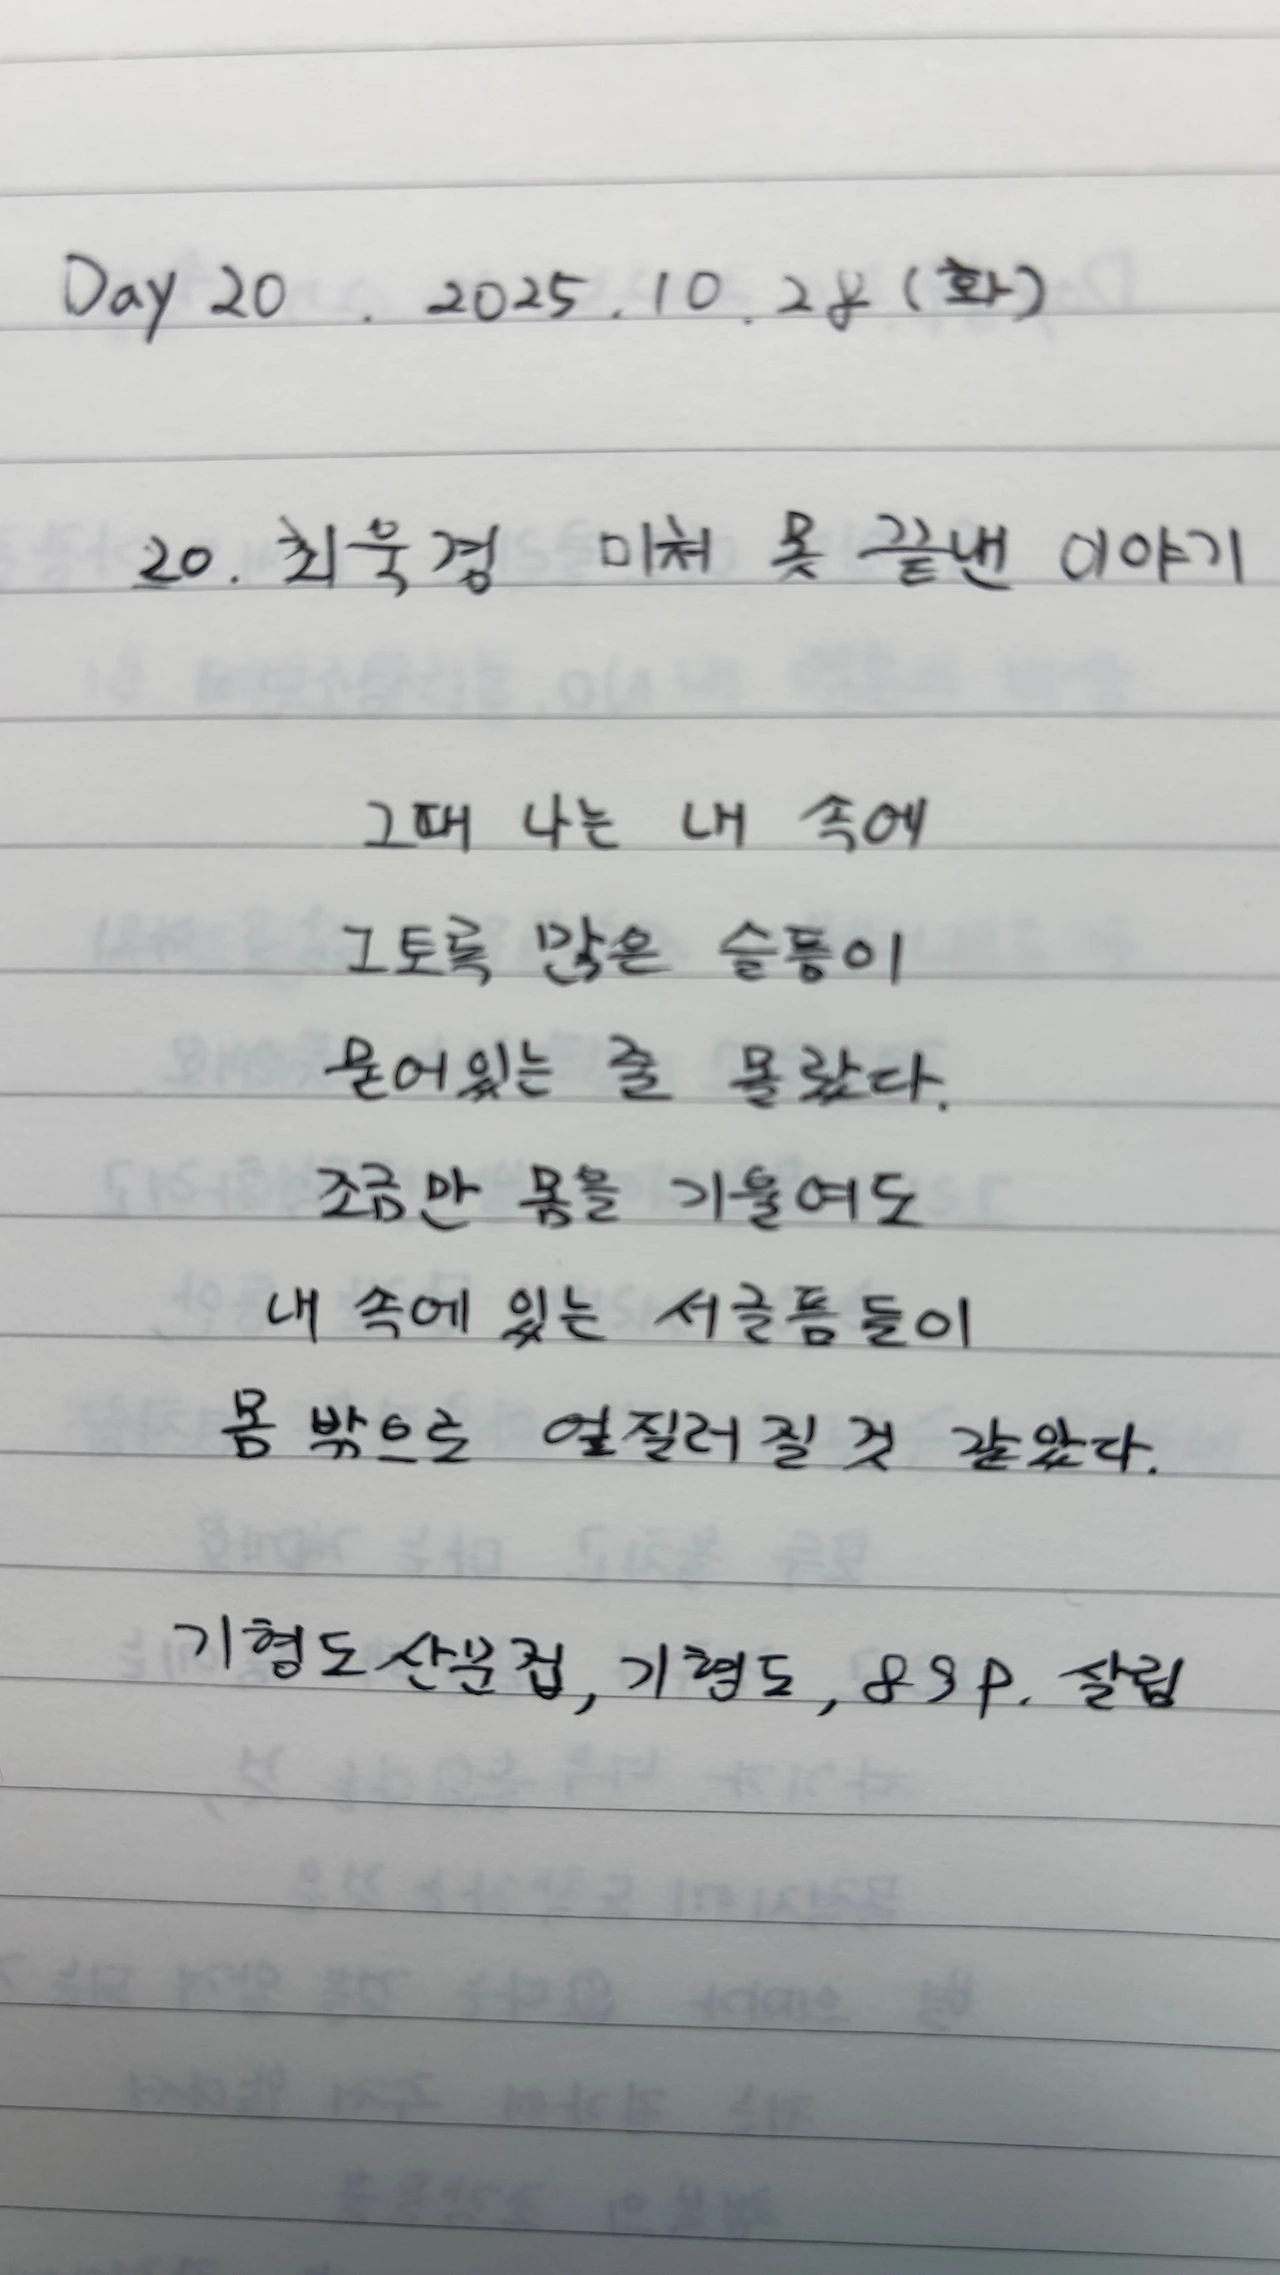 Day 20 . 2025.10.28 (화)
20. 최욱경 미처 못 끝낸 이야기
그때 나는 내 속에
그토록 많은 슬픔이
묻어있는 줄 몰랐다.
조금만 몸을 기울여도
내 속에 있는 서글픔들이
몸 밖으로 엎질러질 것 같았다.
기형도 산문집, 기형도, 89p. 살림